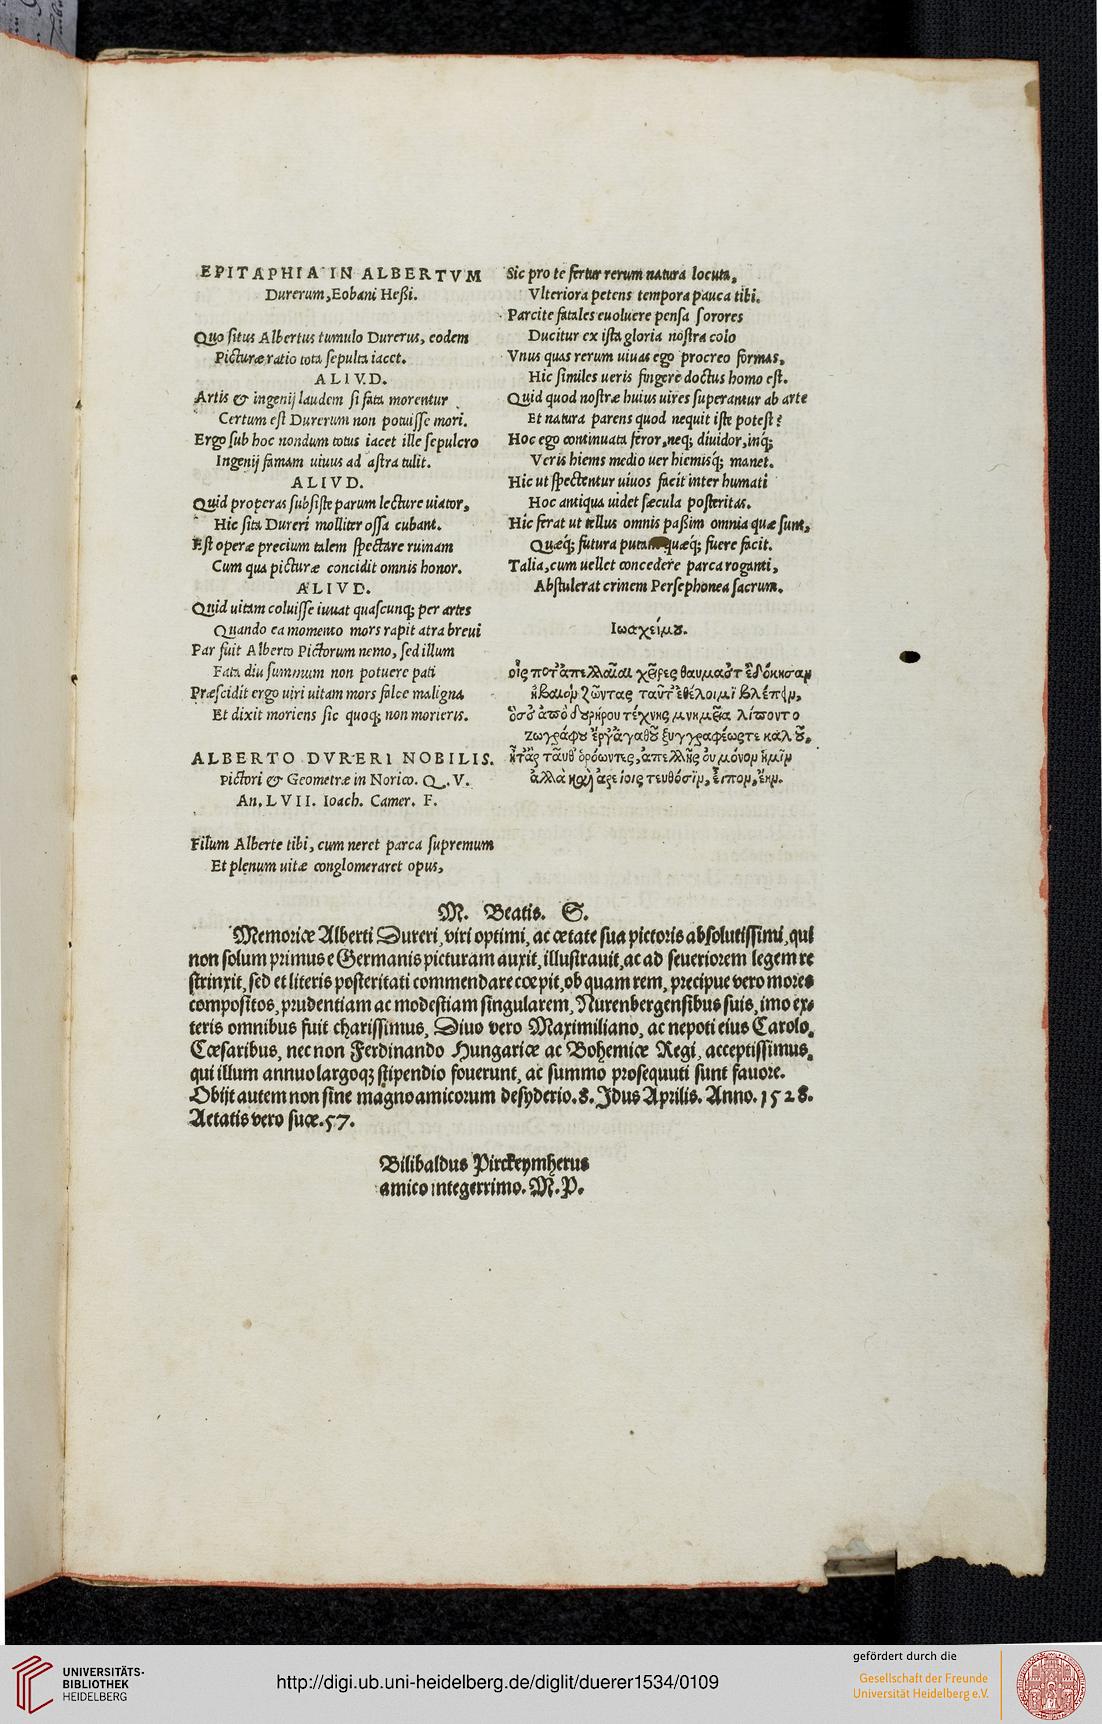 EPITAPHIA IN ALBERTVM
Durerum, Eobani Heßi.
Quo situs Albertus tumulo Durerus, eodem
Picturæ ratio tota sepulta iacet.
ALIVD.
Artis & ingenij laudem si fata morentur
Certum est Durerum non potuisse mori.
Ergo sub hoc nondum totus iacet ille sepulcro
Ingenij famam uiuus ad astra tulit.
ALIVD.
Quid properas subsiste parum lecture uiator,
Hic sita Dureri molliter ossa cubant.
Est operæ precium talem spectare ruinam
Cum qua picturæ concidit omnis honor.
ALIVD.
Quid uitam coluisse iuuat quascunq; per artes
Quando ea momento mors rapit atra breui
Par fuit Alberto Pictorum nemo, sed illum
Fata diu summum non potuere pati
Præscidit ergo uiri uitam mors falce maligna
Et dixit moriens sic quoq; non morieris.
ALBERTO DVRERI NOBILIS.
pictori & Geometræ in Norico. Q. V.
An. LVII. Ioach. Camer. F.
Filum Alberte tibi, cum neret parca supremum
Et plenum uitæ conglomeraret opus,
Sic pro te fertur rerum natura locuta,
Vlteriora petens tempora pauca tibi.
Parcite fatales euoluere pensa sorores
Ducitur ex ista gloria nostra colo
Vnus quas rerum uiuas ego procreo formas,
Hic similes ueris fingere doctus homo est.
Quid quod nostræ huius uires superantur ab arte
Et natura parens quod nequit iste potest?
Hoc ego continuata feror, neq; diuidor, inq;
Veris hiems medio uer hiemisq; manet.
Hic ut spectentur uiuos facit inter humati
Hoc antiqua uidet sæcula posteritas.
Hic ferat ut tellus omnis paßim omnia quæ sunt,
Quæq; futura quæq; fuere facit.
Talia, cum uellet concedere parca roganti,
Abstulerat crinem Persephonea sacrum.
Ιωαχείμου.
οἷς ποτ' ἀπελλαῖαι χεῖρες θαυμαστ' ἐδόκησαν
ζῶντας ταῦτ' ἐθέλοιμι βλέπειν,
ὅσσ' ἀπὸ δυρήρου τέχνης μνημεῖα λίποντο
ζωγράφου ἔργ' ἀγαθοῦ ξυγγραφέως τε καλοῦ,
ταῦθ' ὁρόωντες, ἀπελλῆς οὐ μόνον ἡμῖν
ἀλλὰ καὶ
M. Beatis. S.
Memoriæ Alberti Dureri, viri optimi, ac ætate sua pictoris absolutissimi, qui
non solum primus e Germanis picturam auxit, illustrauit, ac ad seueriorem legem re
strinxit, sed et literis posteritati commendare cœpit, ob quam rem, precipue vero mores
compositos, prudentiam ac modestiam singularem, Nurenbergensibus suis, imo ex=
teris omnibus fuit charissimus, Diuo vero Maximiliano, ac nepoti eius Carolo,
Cæsaribus, nec non Ferdinando Hungariæ ac Bohemiæ Regi, acceptissimus,
qui illum annuo largoq; stipendio fouerunt, ac summo prosequuti sunt fauore.
Obijt autem non sine magno amicorum desyderio. 8. Idus Aprilis. Anno. 1528.
Aetatis vero suæ. 57.
Bilibaldus Pirckeymherus
amico integerrimo. M. P.
UNIVERSITÄTS-
BIBLIOTHEK
HEIDELBERG
http://digi.ub.uni-heidelberg.de/diglit/duerer1534/0109
gefördert durch die
Gesellschaft der Freunde
Universität Heidelberg e.V.